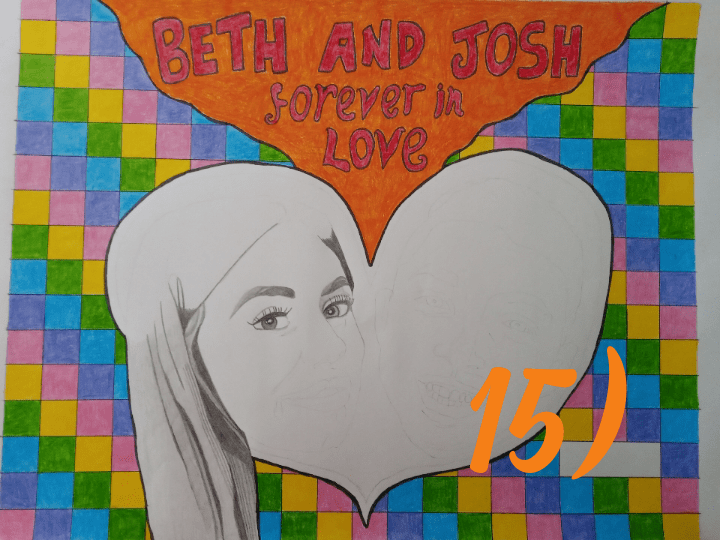 BETH AND JOSH
forever in
LOVE
15)